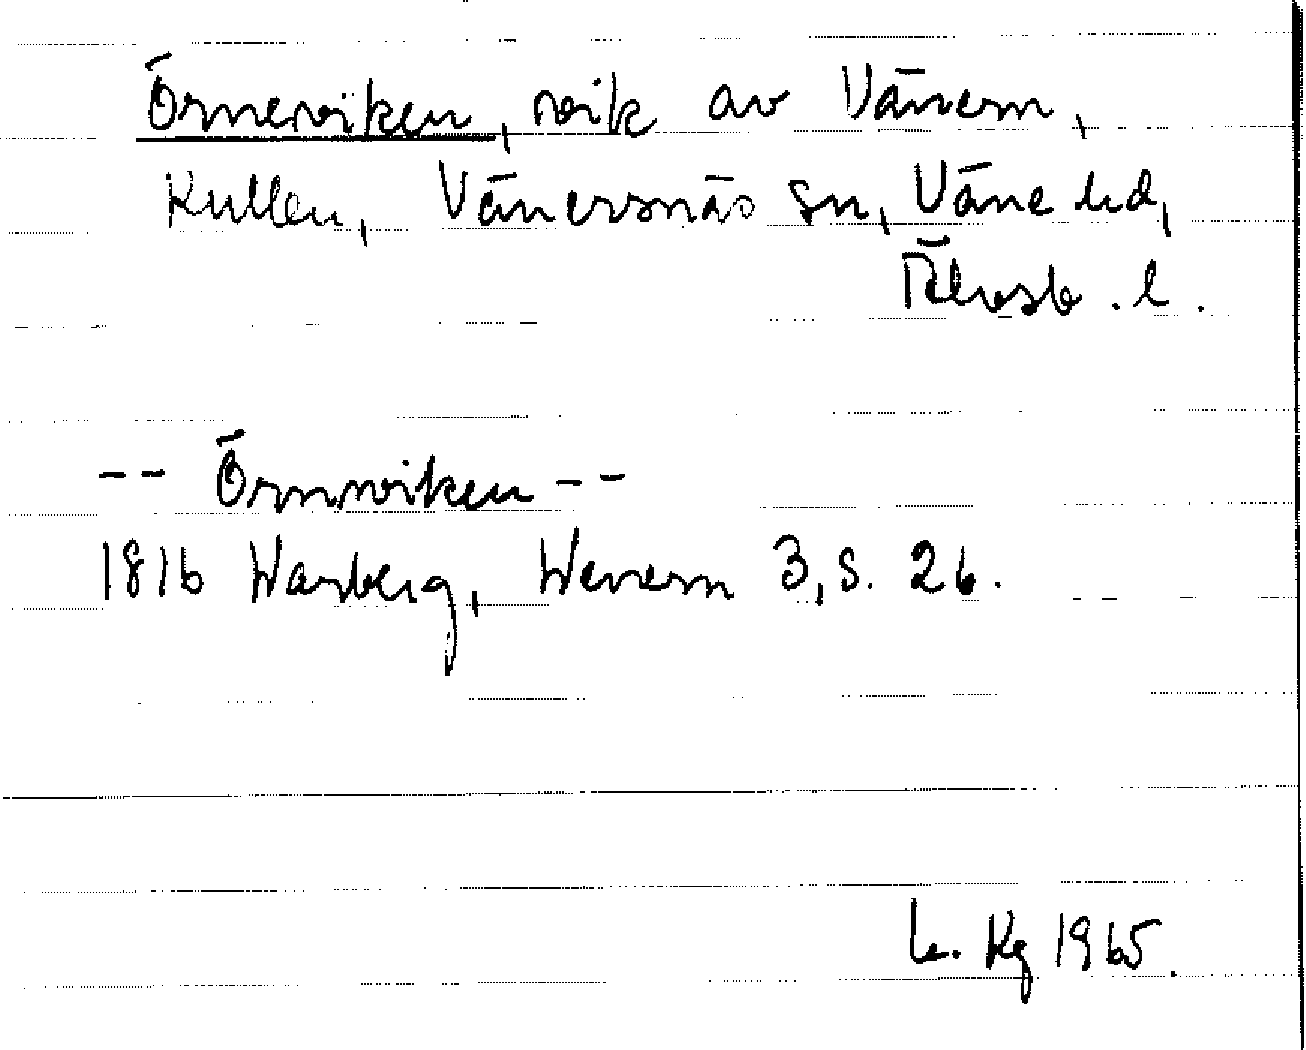 Örneviken, vik av Vänern,
Kullen, Vänersnäs sn, Väne hd,
Älvsb. l.
-- Örnnviken --
1816 Warberg, Wenern 3, s. 26.
Kg 1965.